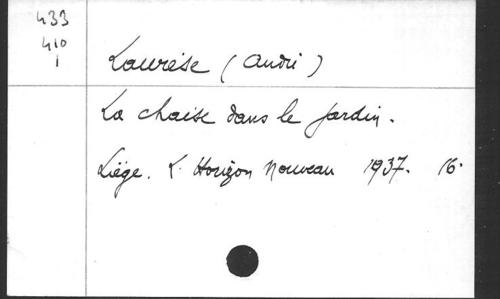 433
410
1
Laurèse (André)
La chaise dans le jardin.
Liège. L'Horizon Nouveau 1937. 16°